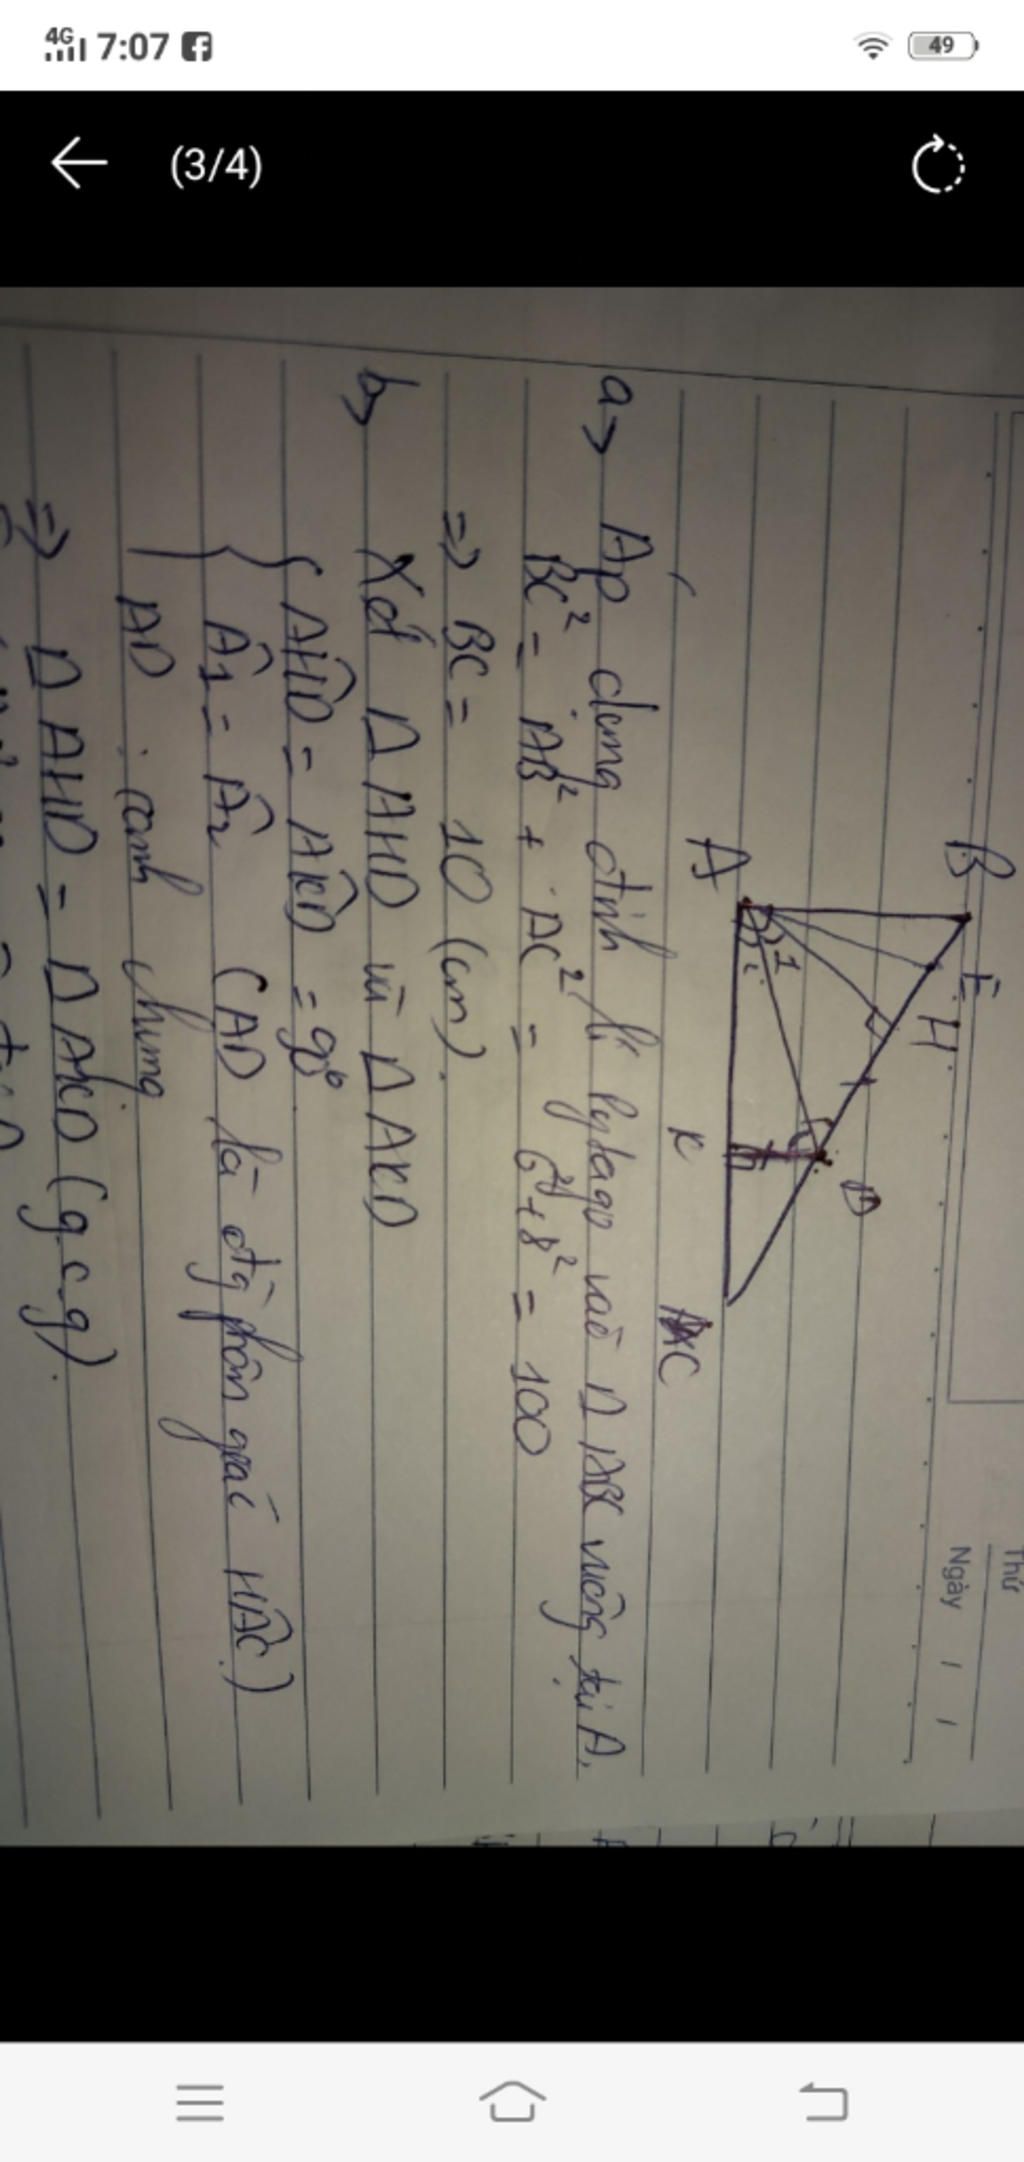 4G 7:07 49
(3/4)
Thứ
Ngày / /
B
E
H
D
A
1
2
K
C
a> Áp dụng định lí Pytago vào Δ ABC vuông tại A.
BC² = AB² + AC² = 6² + 8² = 100
=> BC = 10 (cm).
b> Xét Δ AHD và Δ AKD
AHD = AKD = 90°
Â1 = Â2 (AD là đg phân giác HAC)
AD . cạnh chung
=> Δ AHD = Δ AKD (g.c.g).